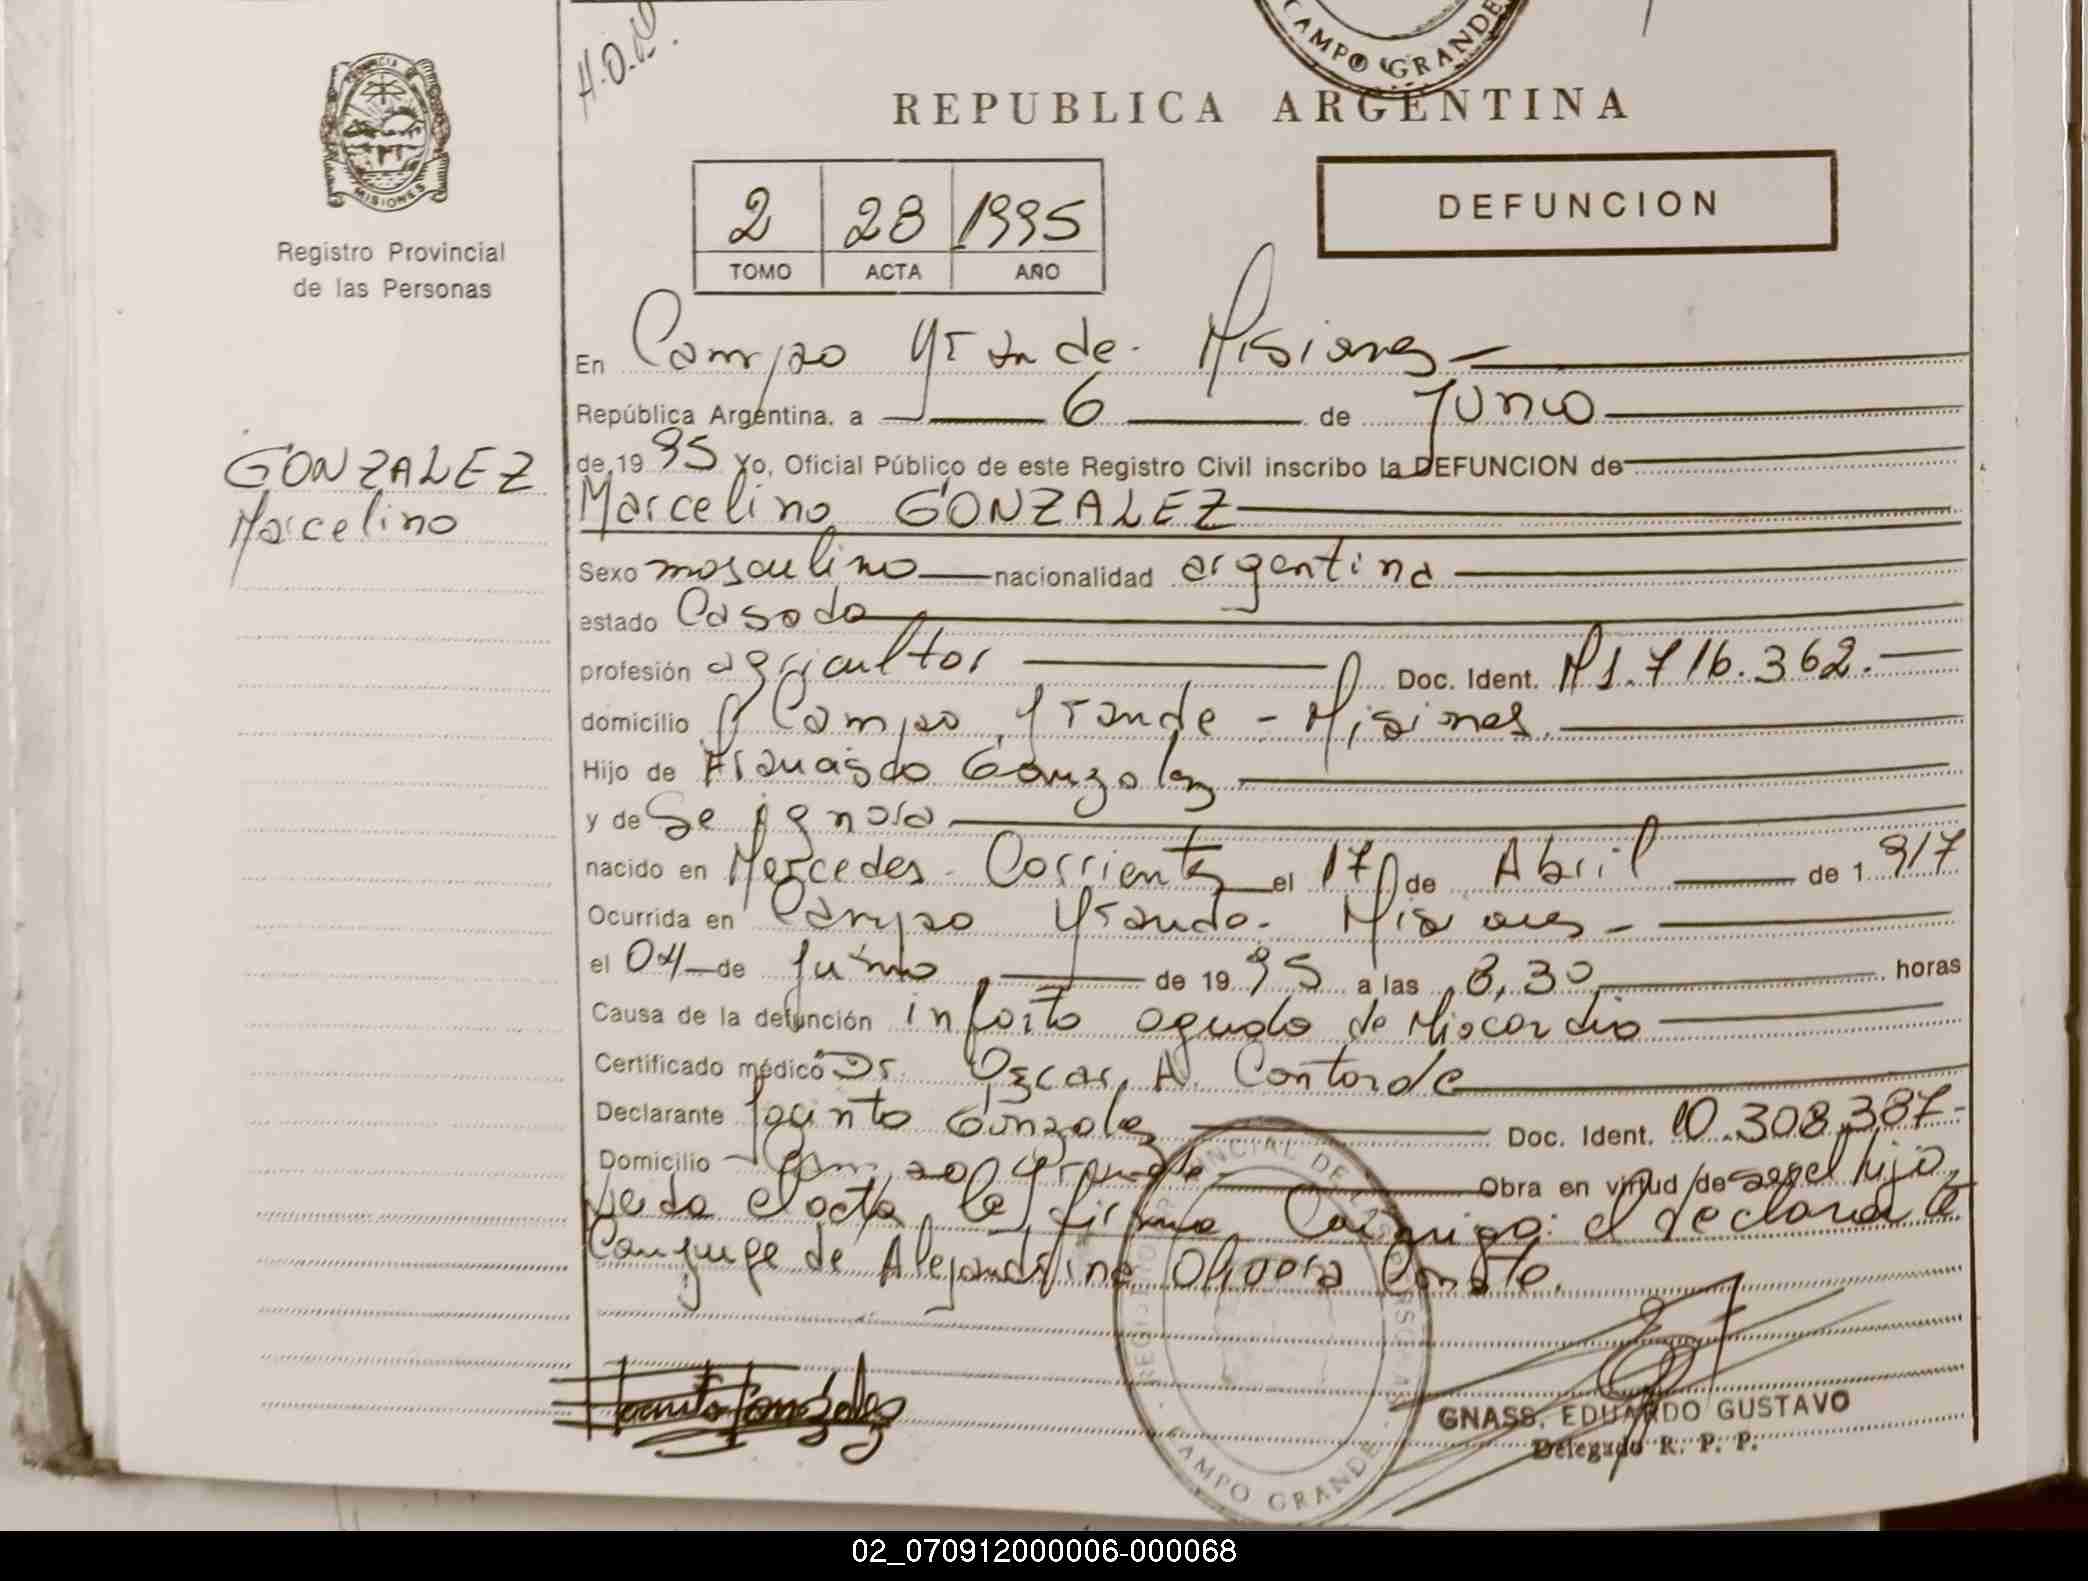 H.O.N.
CAMPO GRANDE
PROVINCIA DE
MISIONES
REPUBLICA ARGENTINA
Registro Provincial
de las Personas
2 28 1995
TOMO ACTA AÑO
DEFUNCION
En Campo Grande - Misiones
República Argentina, a 6 de Junio
de 19 95 Yo, Oficial Público de este Registro Civil inscribo la DEFUNCION de
GONZALEZ
Marcelino
Marcelino GONZALEZ
Sexo masculino nacionalidad argentina
estado Casado
profesión agricultor Doc. Ident. M 1.716.362.-
domicilio Campo Grande - Misiones.
Hijo de Francisco Gonzalez
y de Se ignora
nacido en Mercedes - Corrientes el 17 de Abril de 1 917
Ocurrida en Campo Grande - Misiones -
el 04 de Junio de 19 95 a las 8,30 horas
Causa de la defunción infarto agudo de Miocardio
Certificado médico Dr. Oscar A.
Declarante Jacinto Gonzalez Doc. Ident. 10.308.387-
Domicilio Campo Grande Obra en virtud de ser el hijo,
leída el acta la firma el declarante
Conyuge de Alejandrina Olivera
Jacinto González
REGISTRO PROVINCIAL DE LAS PERSONAS
CAMPO GRANDE
GNASS, EDUARDO GUSTAVO
Delegado R. P. P.
02_070912000006-000068